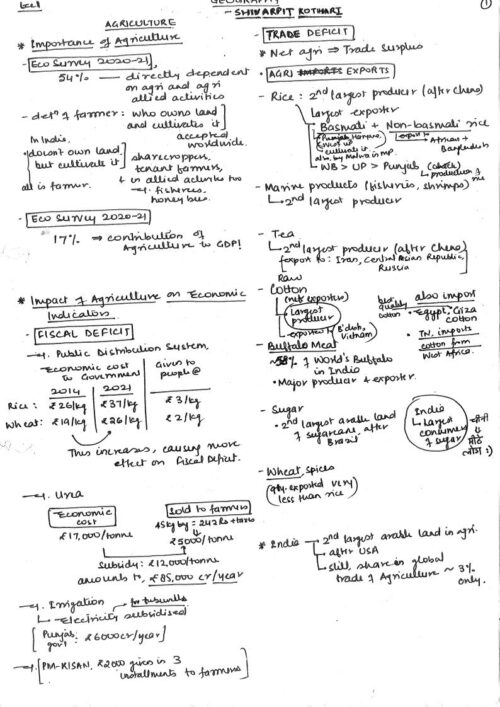 Lec 1
GEOGRAPHY
- SHIVARPIT KOTHARI
①
AGRICULTURE
* Importance of Agriculture
- Eco Survey 2020-21,
54% — directly dependent
on agri and agri
allied activities
- detⁿ of farmer: who owns land
and cultivates it
accepted
worldwide.
In India,
doesn't own land,
but cultivate it
all is farmer.
sharecroppers,
tenant farmers,
+ in allied activities too
eg. fisheries,
honey bee.
- Eco Survey 2020-21
17% ⇒ contribution of
Agriculture to GDP!
* Impact of Agriculture on Economic
Indicators
- FISCAL DEFICIT
→ eg. Public Distribution System,
Economic cost
to Government
Given to
people @
2014 2021
Rice: ₹26/kg ₹37/kg ₹3/kg
Wheat: ₹19/kg ₹26/kg ₹2/kg
This increases, causing more
effect on Fiscal Deficit.
→ eg. Urea
Economic
cost
Sold to farmers
45kg bag = 242 Rs + taxes
₹17,000/tonne
₹5000/tonne
Subsidy: ₹12,000/tonne
amounts to, ₹85,000 cr/year
→ eg. Irrigation
for tubewells
Electricity subsidised
[Punjab govt: ₹6000cr/year]
→ eg. [PM-KISAN, ₹2000 given in 3
installments to farmers]
- TRADE DEFICIT
* Net agri ⇒ Trade Surplus
- AGRI EXPORTS
- Rice: 2nd largest producer (after China)
Largest exporter
Basmati + Non-basmati rice
Punjab, Haryana,
cultivate it.
also, by Malwa in MP.
export to
African +
Bangladesh
WB > UP > Punjab
production of rice
- Marine products (fisheries, shrimps)
↳ 2nd largest producer
- Tea
↳ 2nd largest producer (after China)
[export to: Iran, Central Asian Republic,
Russia]
Raw
- Cotton
(net exporter)
Largest
producer
exported to B'desh,
Vietnam
best
quality
cotton
also import
• Egypt, Giza
cotton
• TN. imports
cotton from
West Africa.
- Buffalo Meat
~58% of World's Buffalo
in India
• Major producer + exporter.
- Sugar
• 2nd largest arable land
of sugarcane, after
Brazil
India
↳ Largest
consumer
of sugar
- Wheat, spices
(qty. exported very
less than rice)
* India — 2nd largest arable land in agri.
- after USA
↳ still, share in global
trade of Agriculture ~ 3%
only.